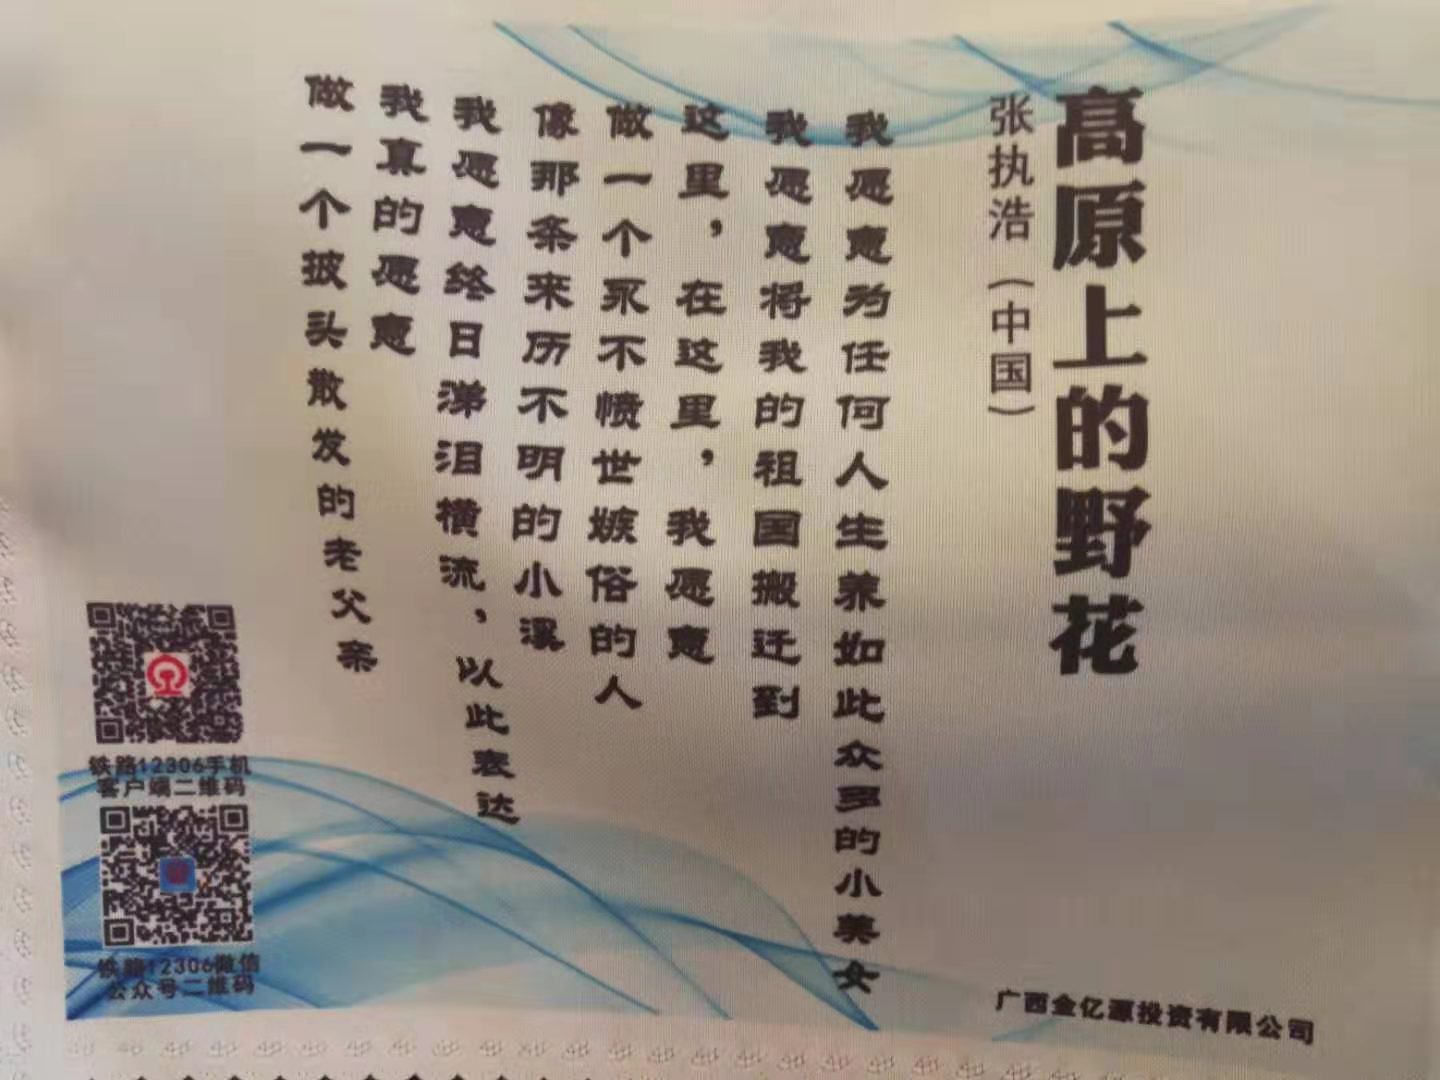 高原上的野花
张执浩（中国）
我愿意为任何人生养如此众多的小美女
我愿意将我的祖国搬迁到
这里，在这里，我愿意
做一个永不愤世嫉俗的人
像那条来历不明的小溪
我愿意终日涕泪横流，以此表达
我真的愿意
做一个披头散发的老父亲
铁路12306手机
客户端二维码
铁路12306微信
公众号二维码
广西金亿源投资有限公司